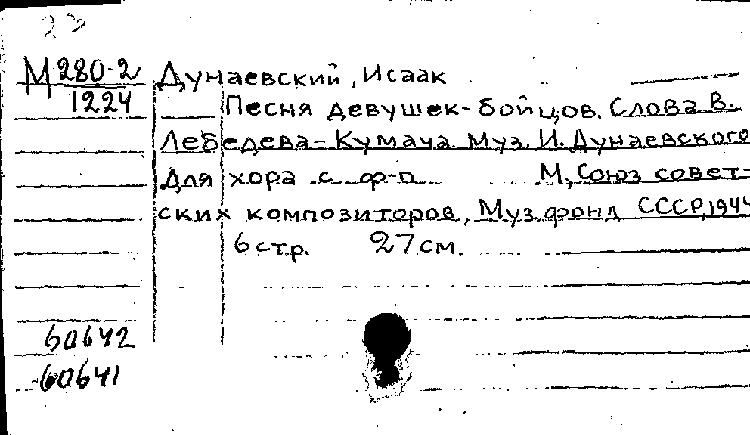 23
М 280-2 Дунаевский, Исаак
1224 Песня девушек-бойцов. Слова В.
Лебедева-Кумача. Муз. И. Дунаевского
Для хора с ф-п М, Союз совет-
ских композиторов, Муз.фонд СССР, 1944
6 стр. 27 см.
60642
60641